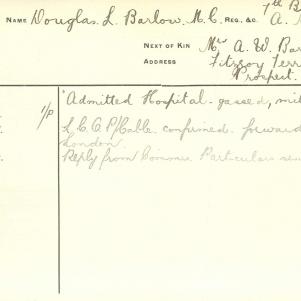 NAME Douglas. L. Barlow. M. C. REG. &C. 7th B
A.
NEXT OF KIN Mr A. W. Bar
ADDRESS Fitzroy Terr
Prospect.
Admitted Hospital - gassed, mil
L. C. Q P/Cable. confirmed. forward
London.
Reply from Commsr. Particulars